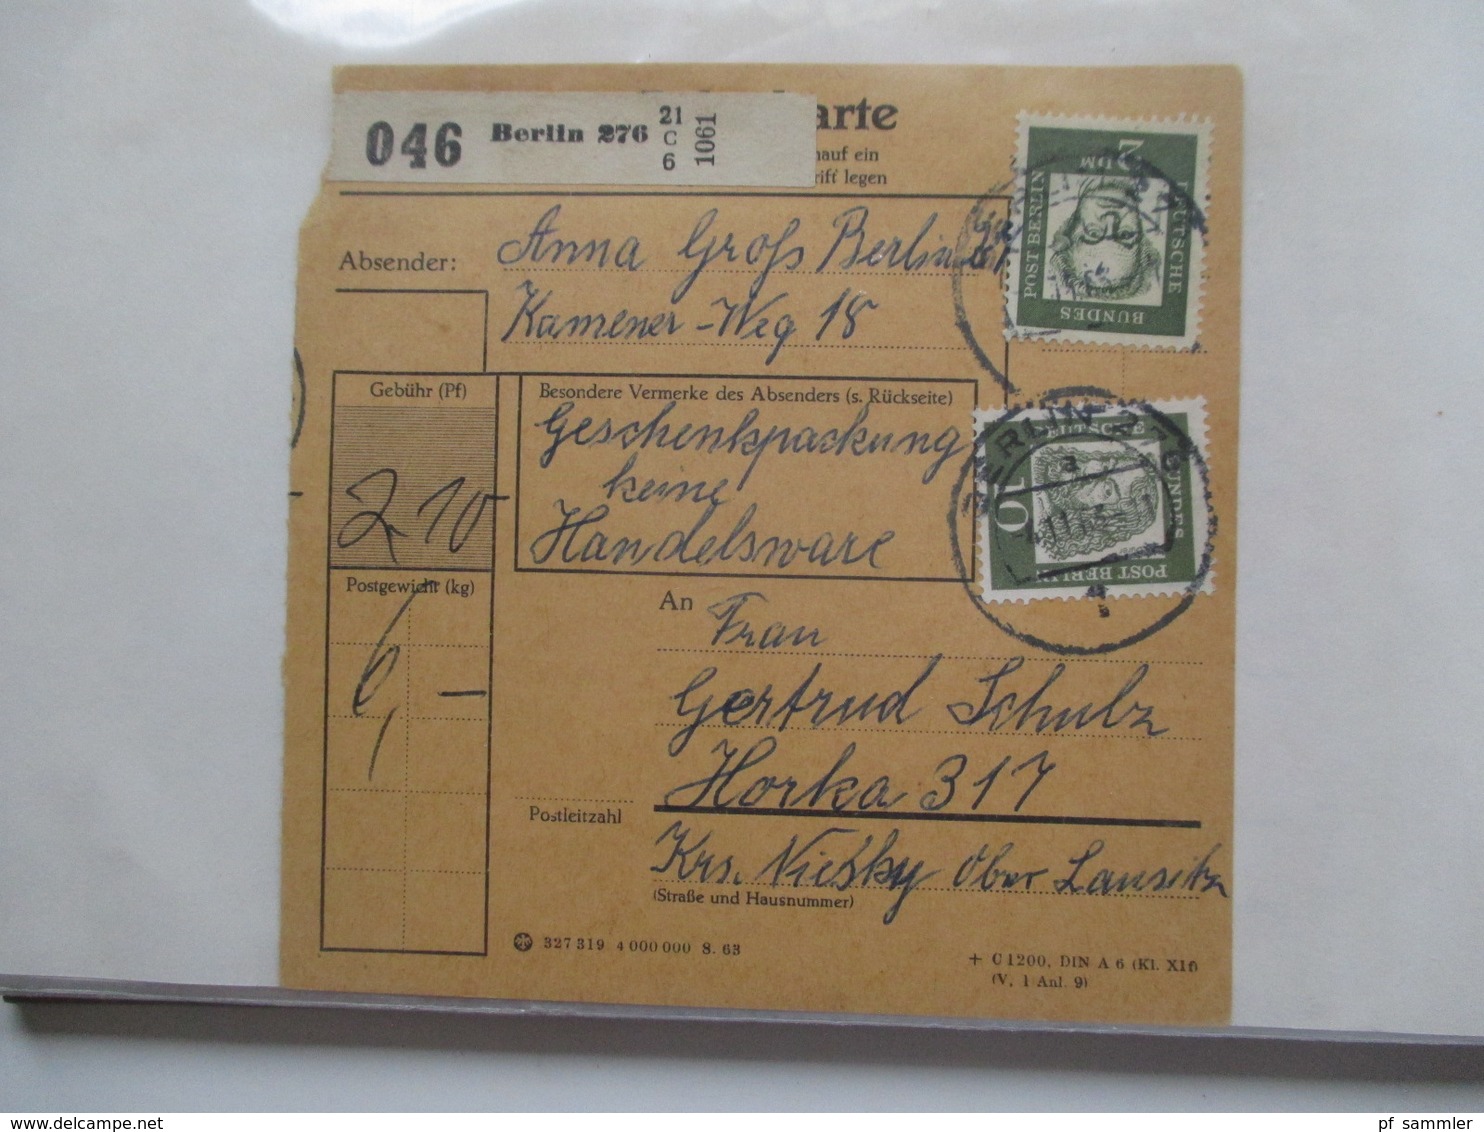 046 Berlin 276 21 C 6 1061
arte
nauf ein
rift legen
Absender: Anna Groß Berlin
Kamener-Weg 18
Gebühr (Pf)
2 10
Postgewicht (kg)
6, –
Besondere Vermerke des Absenders (s. Rückseite)
Geschenkpackung
keine
Handelsware
2
DM
DEUTSCHE
BUNDES
POST BERLIN
10
DEUTSCHE
BUNDES
POST BERLIN
BERLIN 276
a
An
Frau
Gertrud Schulz
Horka 317
Postleitzahl
Krs. Niesky Ober Lausitz
(Straße und Hausnummer)
327 319 4 000 000 8. 63
+ C 1200, DIN A 6 (Kl. XIf)
(V, 1 Anl. 9)
delcampe.net
pf_sammler